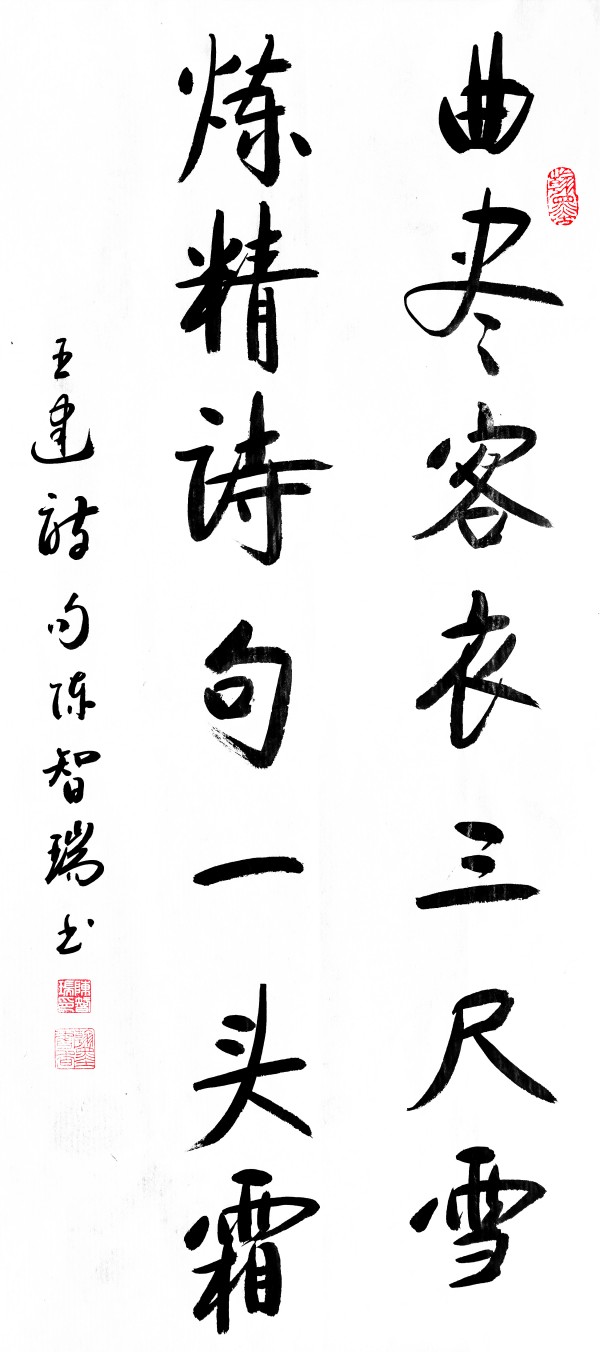 曲尽客衣三尺雪
炼精诗句一头霜
王建诗句陈智瑞书